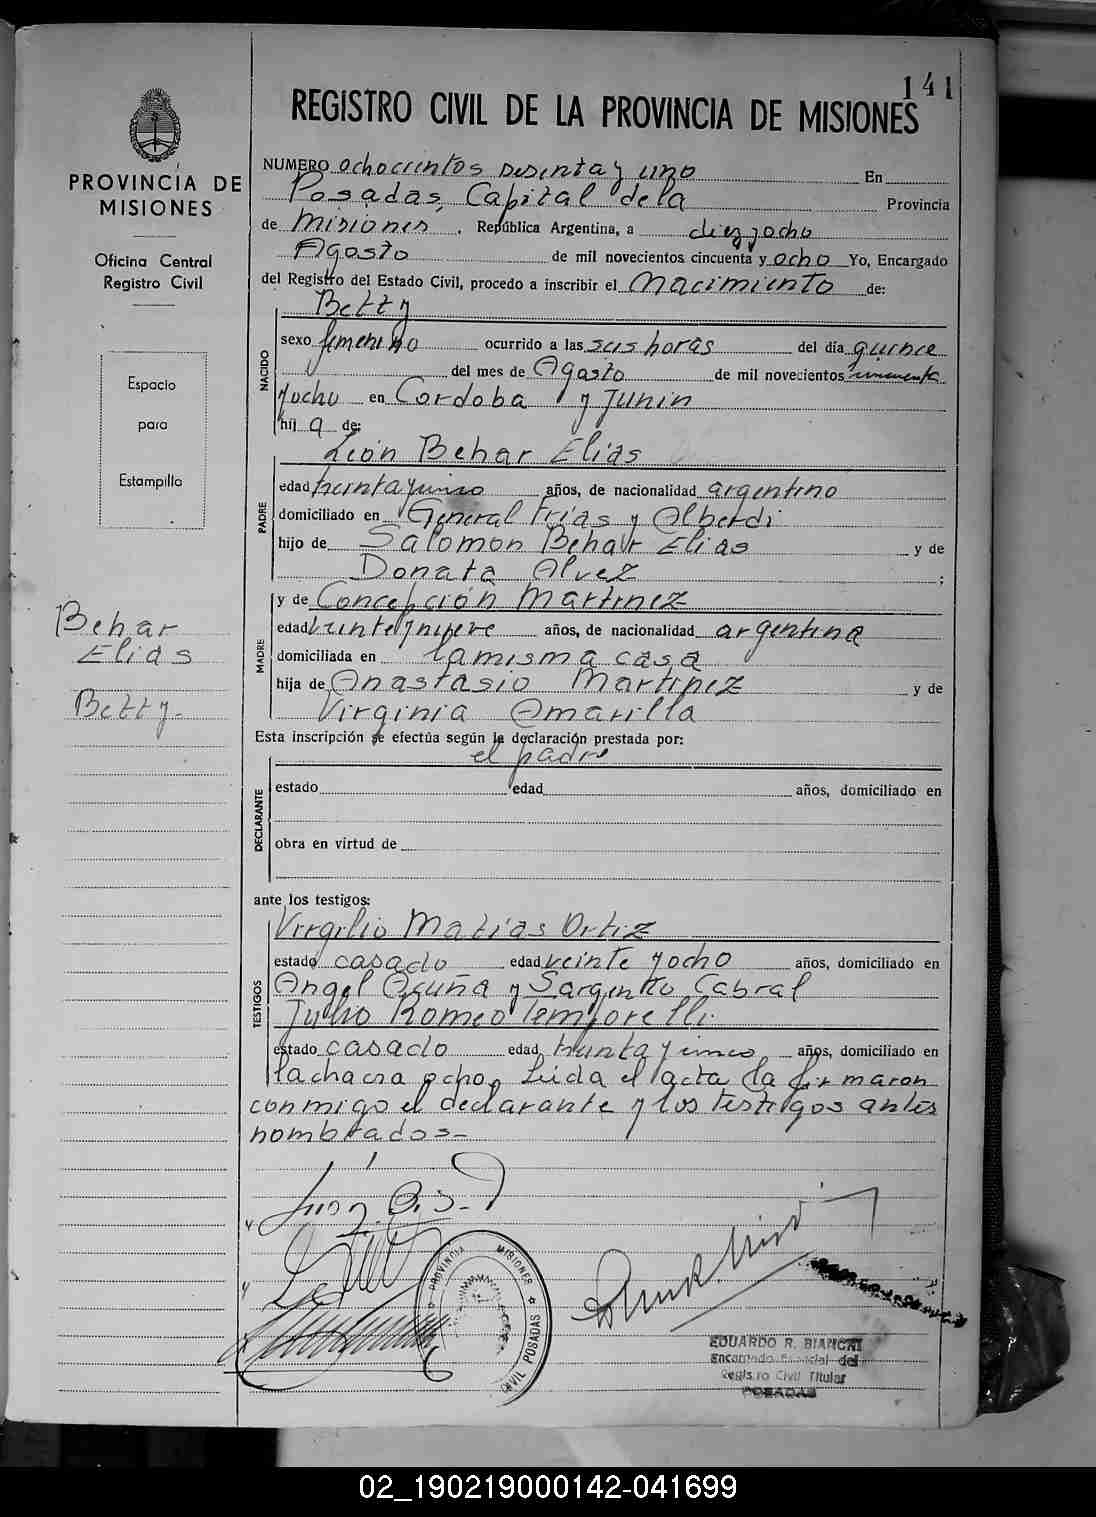 141
REGISTRO CIVIL DE LA PROVINCIA DE MISIONES
PROVINCIA DE
MISIONES
Oficina Central
Registro Civil
Espacio
para
Estampilla
Behar
Elias
Betty-
NUMERO ochocientos sesenta y uno En
Posadas, Capital de la Provincia
de Misiones, República Argentina, a diez y ocho
Agosto de mil novecientos cincuenta y ocho Yo, Encargado
del Registro del Estado Civil, procedo a inscribir el Nacimiento de:
NACIDO
Betty
sexo femenino ocurrido a las seis horas del día quince
del mes de Agosto de mil novecientos cincuenta
y ocho en Cordoba y Junin
hij a de:
PADRE
León Behar Elias
edad treinta y cinco años, de nacionalidad argentino
domiciliado en General Frias y Alberdi
hijo de Salomon Behar Elias y de
Donata Alvez ;
MADRE
y de Concepción Martinez
edad veinte y nueve años, de nacionalidad argentina
domiciliada en la misma casa
hija de Anastasio Martinez y de
Virginia Amarilla
Esta inscripción se efectúa según la declaración prestada por:
DECLARANTE
el padre
estado edad años, domiciliado en
obra en virtud de
ante los testigos:
TESTIGOS
Virgilio Matias Ortiz
estado casado edad veinte y ocho años, domiciliado en
Angel Acuña y Sargento Cabral
Julio Romeo Temporelli
estado casado edad treinta y cinco años, domiciliado en
la chacra ocho. Leida el acta la firmaron
conmigo el declarante y los testigos antes
nombrados-
PROVINCIA MISIONES
CIVIL POSADAS
EDUARDO R. BIANCHI
Encargado del
Registro Civil Titular
POSADAS
02_190219000142-041699